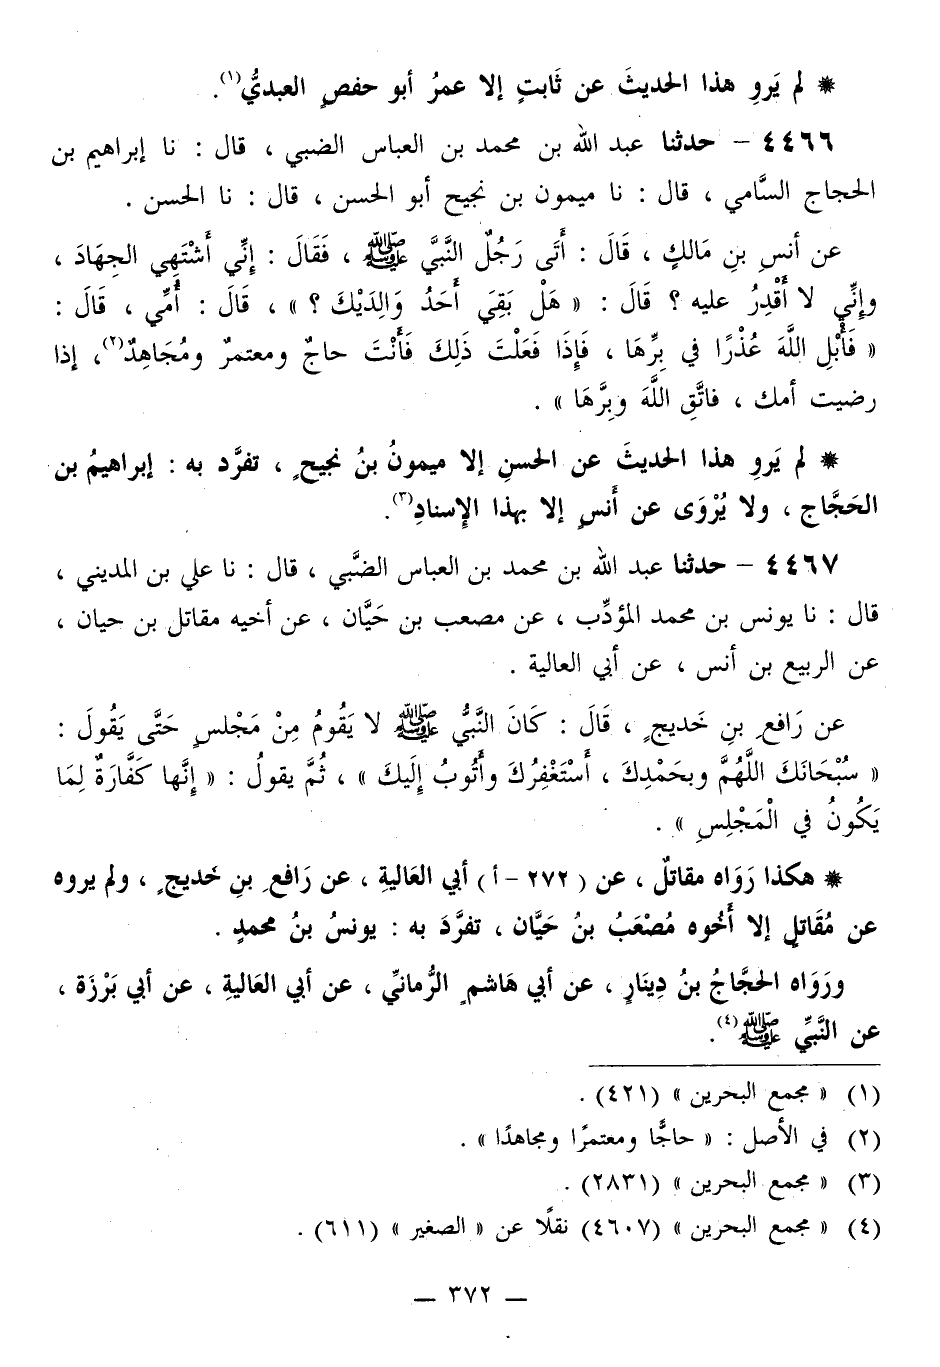 * لم يَروِ هذا الحديثَ عن ثَابتٍ إلا عمرُ أبو حفصٍ العبديُّ(١).
٤٤٦٦ – حدثنا عبد الله بن محمد بن العباس الضبي ، قال : نا إبراهيم بن
الحجاج السَّامي ، قال : نا ميمون بن نجيح أبو الحسن ، قال : نا الحسن .
عن أنسِ بنِ مَالكٍ ، قَالَ : أَتَى رَجُلٌ النَّبيَّ ﷺ ، فَقَالَ : إِنِّي أَشْتَهِي الجِهَادَ ،
وإِنِّي لا أَقْدِرُ عليه ؟ قَالَ : « هَلْ بَقِيَ أَحَدُ وَالِدَيْكَ ؟ » ، قَالَ : أُمِّي ، قَالَ :
« فَأَبْلِ اللَّهَ عُذْرًا في بِرِّهَا ، فَإِذَا فَعَلْتَ ذَلِكَ فَأَنْتَ حاجٌ ومعتمرٌ ومُجَاهِدٌ(٢)، إذا
رضيت أمك ، فاتَّقِ اللَّهَ وبِرَّهَا » .
* لم يَروِ هذا الحديثَ عن الحسنِ إلا ميمونُ بنُ نجيحٍ ، تفرَّد به : إبراهيمُ بن
الحَجَّاج ، ولا يُرْوَى عن أَنسٍ إلا بهذا الإسنادِ(٣).
٤٤٦٧ – حدثنا عبد الله بن محمد بن العباس الضَّبي ، قال : نا علي بن المديني ،
قال : نا يونس بن محمد المؤدِّب ، عن مصعب بن حَيَّان ، عن أخيه مقاتل بن حيان ،
عن الربيع بن أنس ، عن أبي العالية .
عن رَافعِ بنِ خَديجٍ ، قَالَ : كَانَ النَّبيُّ ﷺ لا يَقُومُ مِنْ مَجْلسٍ حَتَّى يَقُولَ :
« سُبْحَانَكَ اللَّهُمَّ وبحَمْدِكَ ، أَسْتَغْفِرُكَ وأَتُوبُ إِلَيكَ » ، ثُمَّ يقولُ : « إِنَّها كَفَّارَةٌ لِمَا
يَكُونُ في الْمَجْلِسِ » .
* هكذا رَوَاه مقاتلٌ ، عن (٢٧٢ – أ) أبي العَاليةِ ، عن رَافعِ بنِ خَديجٍ ، ولم يروه
عن مُقَاتلٍ إلا أَخُوه مُصْعَبُ بنُ حَيَّان ، تفرَّدَ به : يونسُ بنُ محمدٍ .
ورَوَاه الحجَّاجُ بنُ دِينَارٍ ، عن أبي هَاشمٍ الرُّمانيِّ ، عن أبي العَاليةِ ، عن أبي بَرْزَة ،
عن النَّبيِّ ﷺ(٤).
(١) « مجمع البحرين » (٤٢١) .
(٢) في الأصل : « حاجًّا ومعتمرًا ومجاهدًا » .
(٣) « مجمع البحرين » (٢٨٣١) .
(٤) « مجمع البحرين » (٤٦٠٧) نقلًا عن « الصغير » (٦١١) .
— ٣٧٢ —